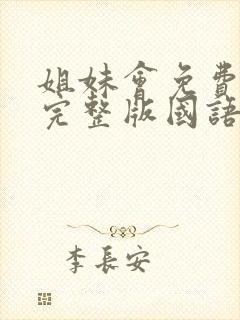 姐妹會免費
完整版國語
李長安